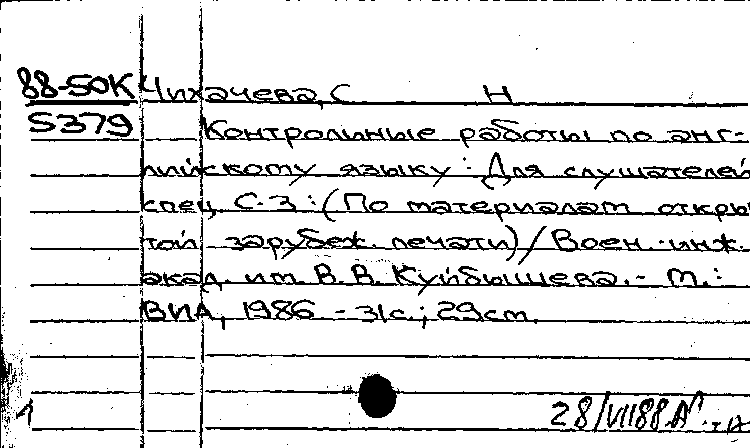 88-50К Чихачева, С Н
5379 Контрольные работы по анг-
лийскому языку: Для слушателей
спец. С-3: (По материалам откры
той зарубеж. печати) / Воен.-инж.
акад. им. В. В. Куйбышева. - М.:
ВИА, 1986 - 31с.; 29см.
28/VII88